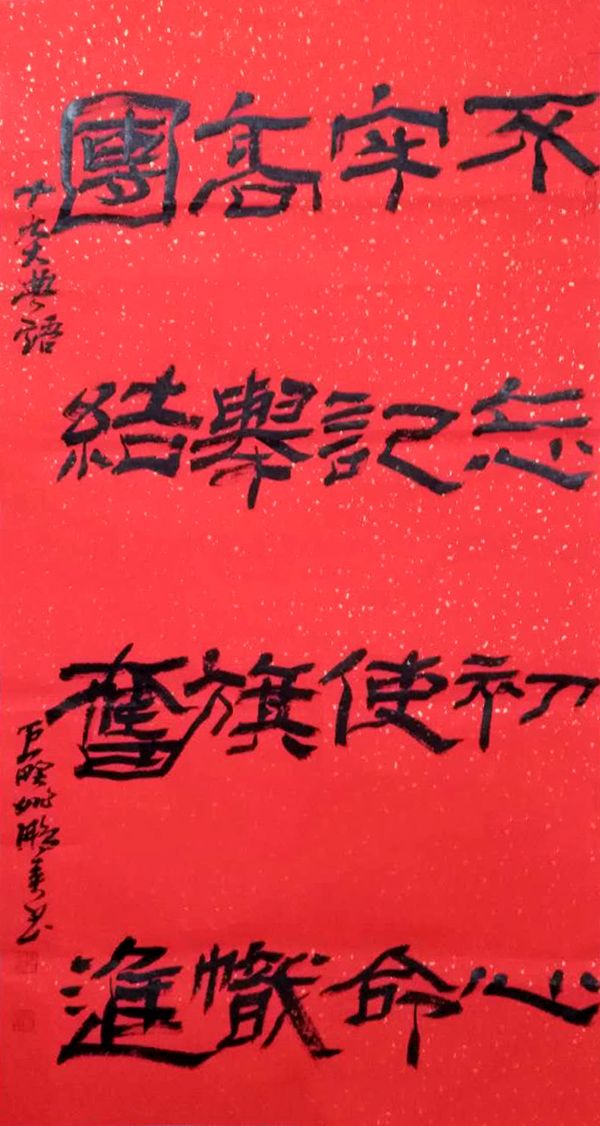 不忘初心
牢記使命
高舉旗幟
團結奮進
十九大典語